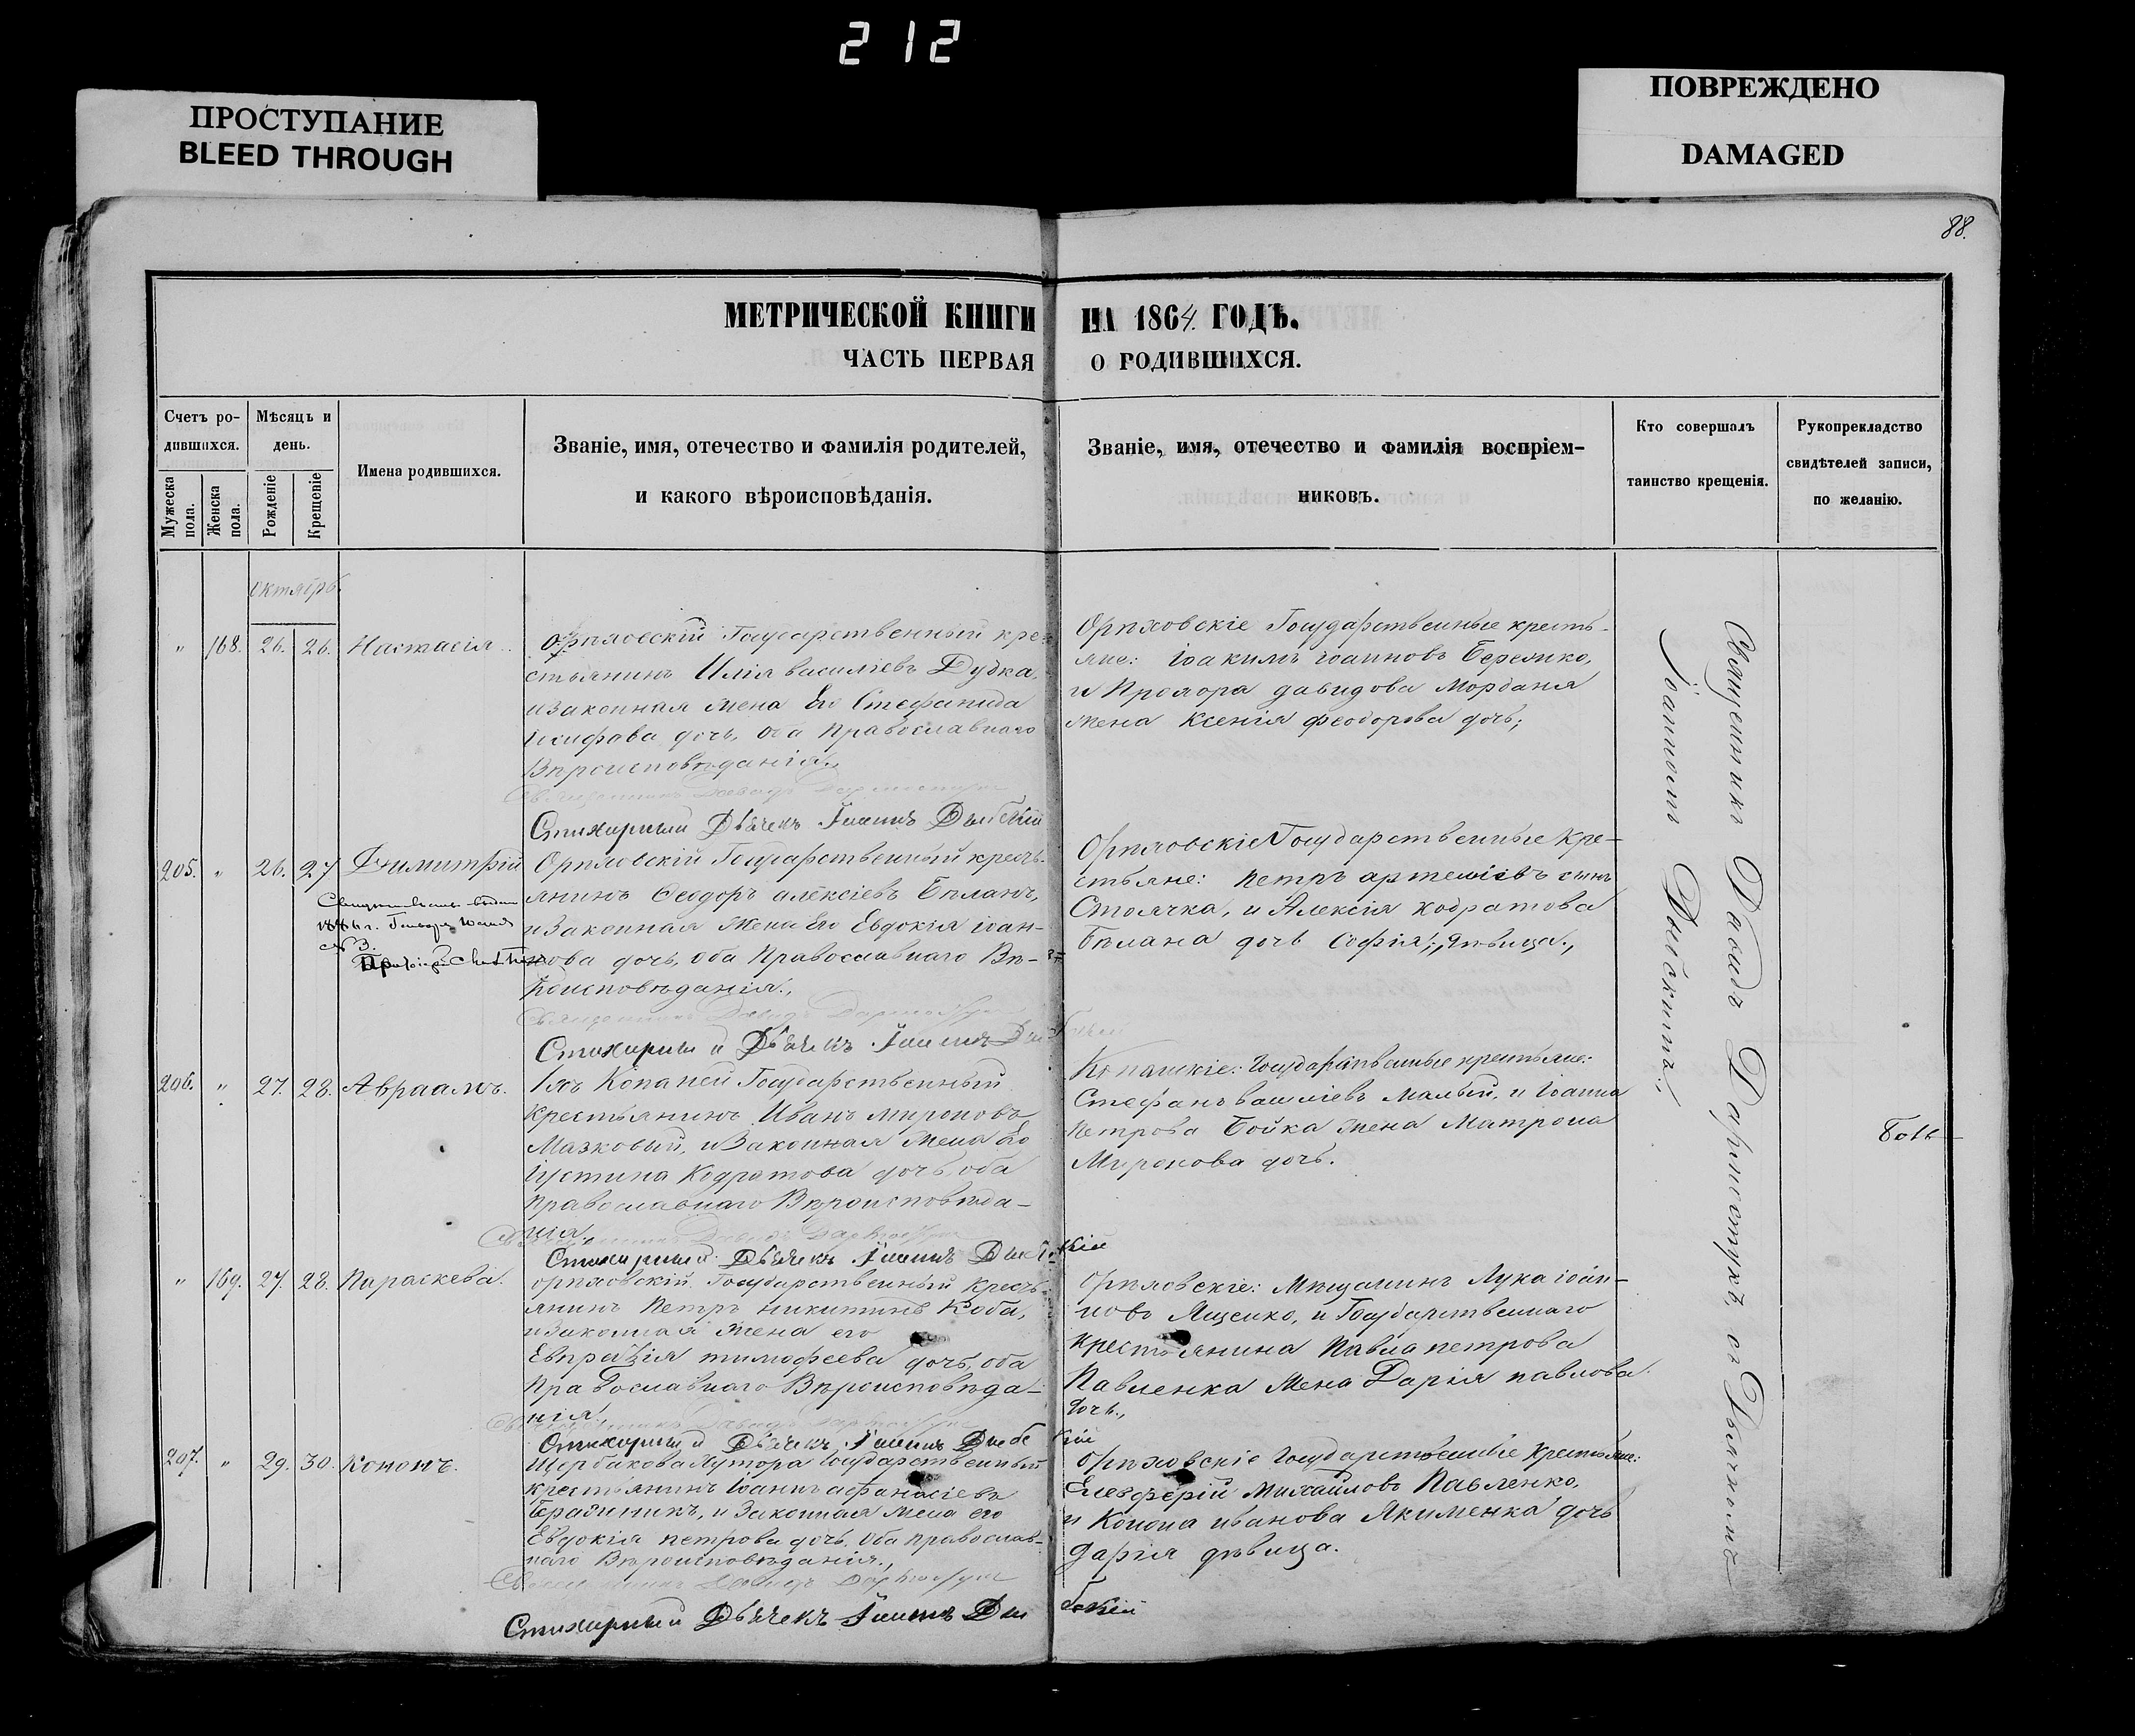 212
ПРОСТУПАНИЕ
BLEED THROUGH
ПОВРЕЖДЕНО
DAMAGED
88.
МЕТРИЧЕСКОЙ КНИГИ НА 1864 ГОДЪ.
ЧАСТЬ ПЕРВАЯ О РОДИВШИХСЯ.
Счетъ ро-
дившихся.
Мужеска пола.
Женска пола.
Мѣсяцъ и
день.
Рожденіе
Крещеніе
Имена родившихся.
Званіе, имя, отечество и фамилія родителей,
и какого вѣроисповѣданія.
Званіе, имя, отечество и фамилія воспріем-
никовъ.
Кто совершалъ
таинство крещенія.
Рукоприкладство
свидѣтелей записи,
по желанію.
Октябрь
" 168. 26. 26. Настасія
Орѣховскій Государственный кре-
стьянинъ Илія василіевъ Дудка,
и законная жена Его Стефанида
дочь, оба Православнаго
Вѣроисповѣданія.,
Священникъ Давидъ
Стихарный Дьячекъ Іоаннъ
Орѣховскіе Государственные кресть-
яне: іоакимъ іоанновъ
и Прохора давидова
жена Ксенія феодорова дочь;
205. " 26. 27 Димитрій
Орѣховскій Государственный кресть-
янинъ Феодоръ алексіевъ Бѣланъ,
и законная жена Его Евдокія іоан-
нова дочь, оба Православнаго Вѣ-
роисповѣданія.,
Священникъ Давидъ
Стихарный Дьячекъ Іоаннъ
Орѣховскіе Государственные Кре-
стьяне: петръ артеміевъ сынъ
и Алексія кодратова
Бѣлана дочь Софія, дѣвица.,
206. " 27. 28. Авраамъ.
Копаней Государственный
крестьянинъ Иванъ мироновъ
Мазковый, и Законная жена Его
Іустина Кодратова дочь, оба
православнаго Вѣроисповѣда-
нія.,
Стихарный Дьячекъ Іоаннъ
Государственные крестьяне:
Стефанъ василіевъ Малый, и іоанна
петрова Бойка жена Матрона
Миронова дочь.
" 169. 27. 28. Параскева.
орѣховскій Государственный Кресть-
янинъ Петръ никитинъ Коба,
и законная жена его
Евпраксія тимофеева дочь, оба
Православнаго Вѣроисповѣда-
нія.,
Стихарный Дьячекъ Іоаннъ
Орѣховскіе: Мѣщанинъ Лука іоан-
новъ Ященко, и Государственнаго
крестьянина павла петрова
Павленка жена Дарія павлова
дочь.,
207. " 29. 30. Кононъ.
Щербакова Хутора Государственный
крестьянинъ іоаннъ афанасіевъ
и Законная жена его
Евдокія петрова дочь, оба православ-
наго Вѣроисповѣданія.,
Стихарный Дьячекъ Іоаннъ
орѣховскіе Государственные Крестьяне:
Елевферій Михайловъ Павленко,
и Конона иванова Якименка дочь
дарія дѣвица.
Священникъ Давидъ
съ Дьячкомъ
Іоанномъ